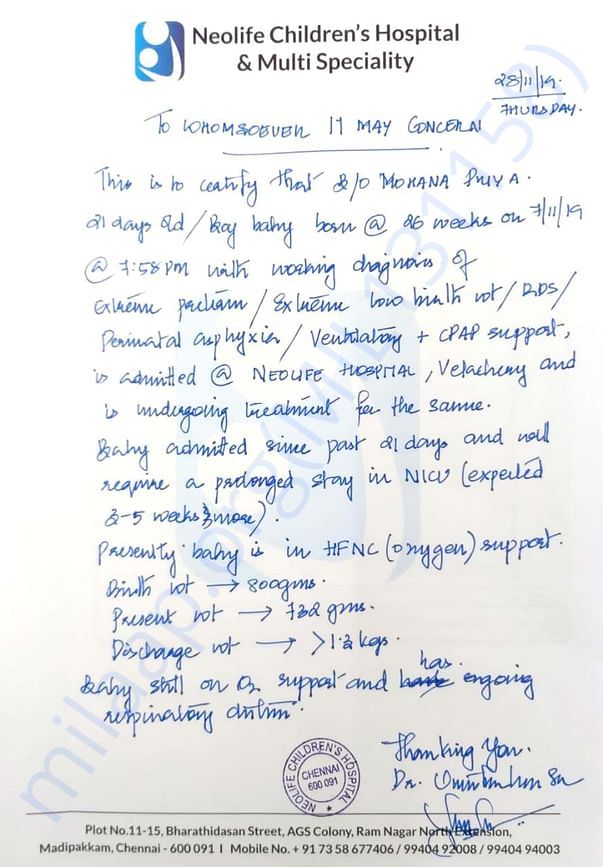 Neolife Children's Hospital
& Multi Speciality
28/11/19.
THURSDAY.
TO WHOMSOEVER IT MAY CONCERN
This is to certify that B/O MOHANA PRIYA.
21 days old / Boy baby born @ 26 weeks on 7/11/19
@ 7:58 PM with working diagnosis of
Extreme preterm / Extreme low birth wt / RDS /
Perinatal asphyxia / Ventilatory + CPAP support,
is admitted @ NEOLIFE HOSPITAL, Velachery and
is undergoing treatment for the same.
Baby admitted since past 21 days and will
require a prolonged stay in NICU (expected
more).
Presently baby is in HFNC (oxygen) support.
Birth wt → 800gms.
Present wt → 732 gms.
Discharge wt → >1.2 kgs.
has
Baby still on O2 support and ongoing
respiratory
Thanking You.
Dr.
NEOLIFE CHILDREN'S HOSPITAL
CHENNAI
600 091
Plot No.11-15, Bharathidasan Street, AGS Colony, Ram Nagar North Extension,
Madipakkam, Chennai - 600 091 I Mobile No. + 91 73 58 677406 / 99404 92008 / 99404 94003